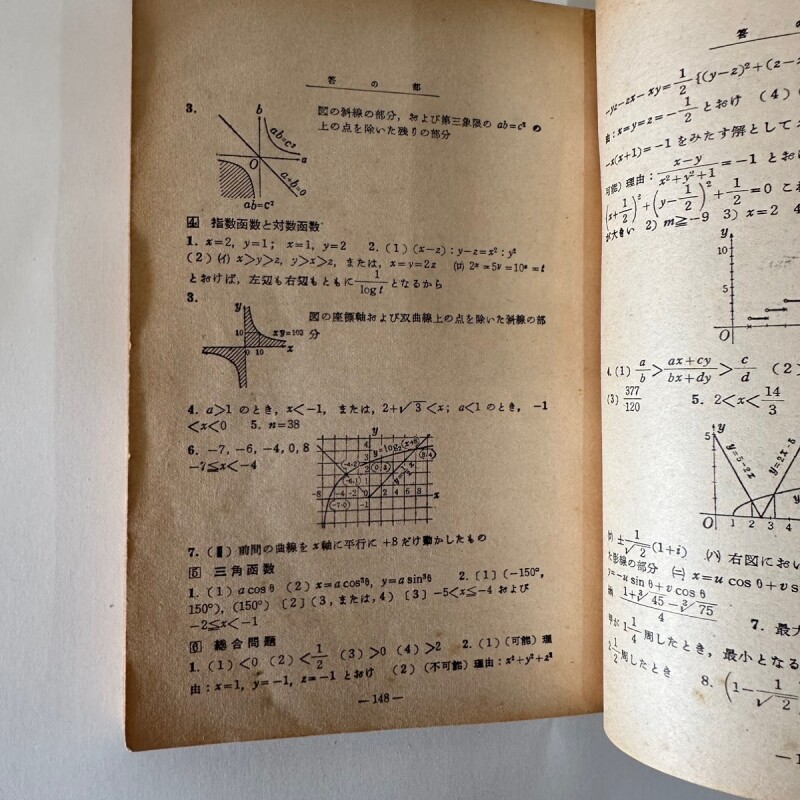 答の部
3.
b
ab=c²
a
O
a+b=0
ab=c²
図の斜線の部分，および第三象限の ab=c² の
上の点を除いた残りの部分
4 指数函数と対数函数
1. x=2, y=1; x=1, y=2 2. (1) (x-z):y-z=x²:y²
(2) (イ) x>y>z, y>x>z, または, x=y=2z (ロ) 2ˣ=5ʸ=10ᶻ=t
とおけば，左辺も右辺もともに 1/log t となるから
3.
y
10
xy=10
0 10
x
図の座標軸および双曲線上の点を除いた斜線の部
分
4. a>1 のとき，x<-1, または, 2+√3<x; a<1 のとき, -1
<x<0 5. n=38
6. -7, -6, -4, 0, 8
-7≦x<-4
y
y=log₂(x+8)
(-4,2)
(0,3)
(8,4)
(-6,1)
(-7,0)
-8 -4 -2 0 2 4 6 8
x
7. 前問の曲線を x 軸に平行に +8 だけ動かしたもの
5 三角函数
1. (1) a cos θ (2) x=a cos³θ, y=a sin³θ 2. [1] (-150°,
150°), (150°) [2] (3, または, 4) [3] -5<x≦-4 および
-2≦x<-1
6 総合問題
1. (1) <0 (2) <1/2 (3) >0 (4) >2 2. (1) (可能) 理
由：x=1, y=-1, z=-1 とおけ (2) (不可能) 理由：x²+y²+z²
—148—
答の
-yz-zx-xy=1/2{(y-z)²+(z-x
由：x=y=z=-1/2 とおけ (4) (
-x(x+1)=-1 をみたす解として
可能) 理由：x-y/x²+y²+1=-1 とお
(x+1/2)²+(y-1/2)²+1/2=0 こ
が大きい 2) m≧-9 3) x=2 4
y
10
5
O
4. (1) a/b>ax+cy/bx+dy>c/d (2)
(3) 377/120 5. 2<x<14/3
y
5
y=5-2x
y=2x-5
O 1 2 3 4
±1/√2(1+i) (ハ) 右図におい
た影線の部分 (ニ) x=u cos θ+v s
y=-u sin θ+v cos θ
1+³√45-³√75/4
7. 最大
1 1/4 周したとき，最小となる
周したとき 8. (1-1/√2